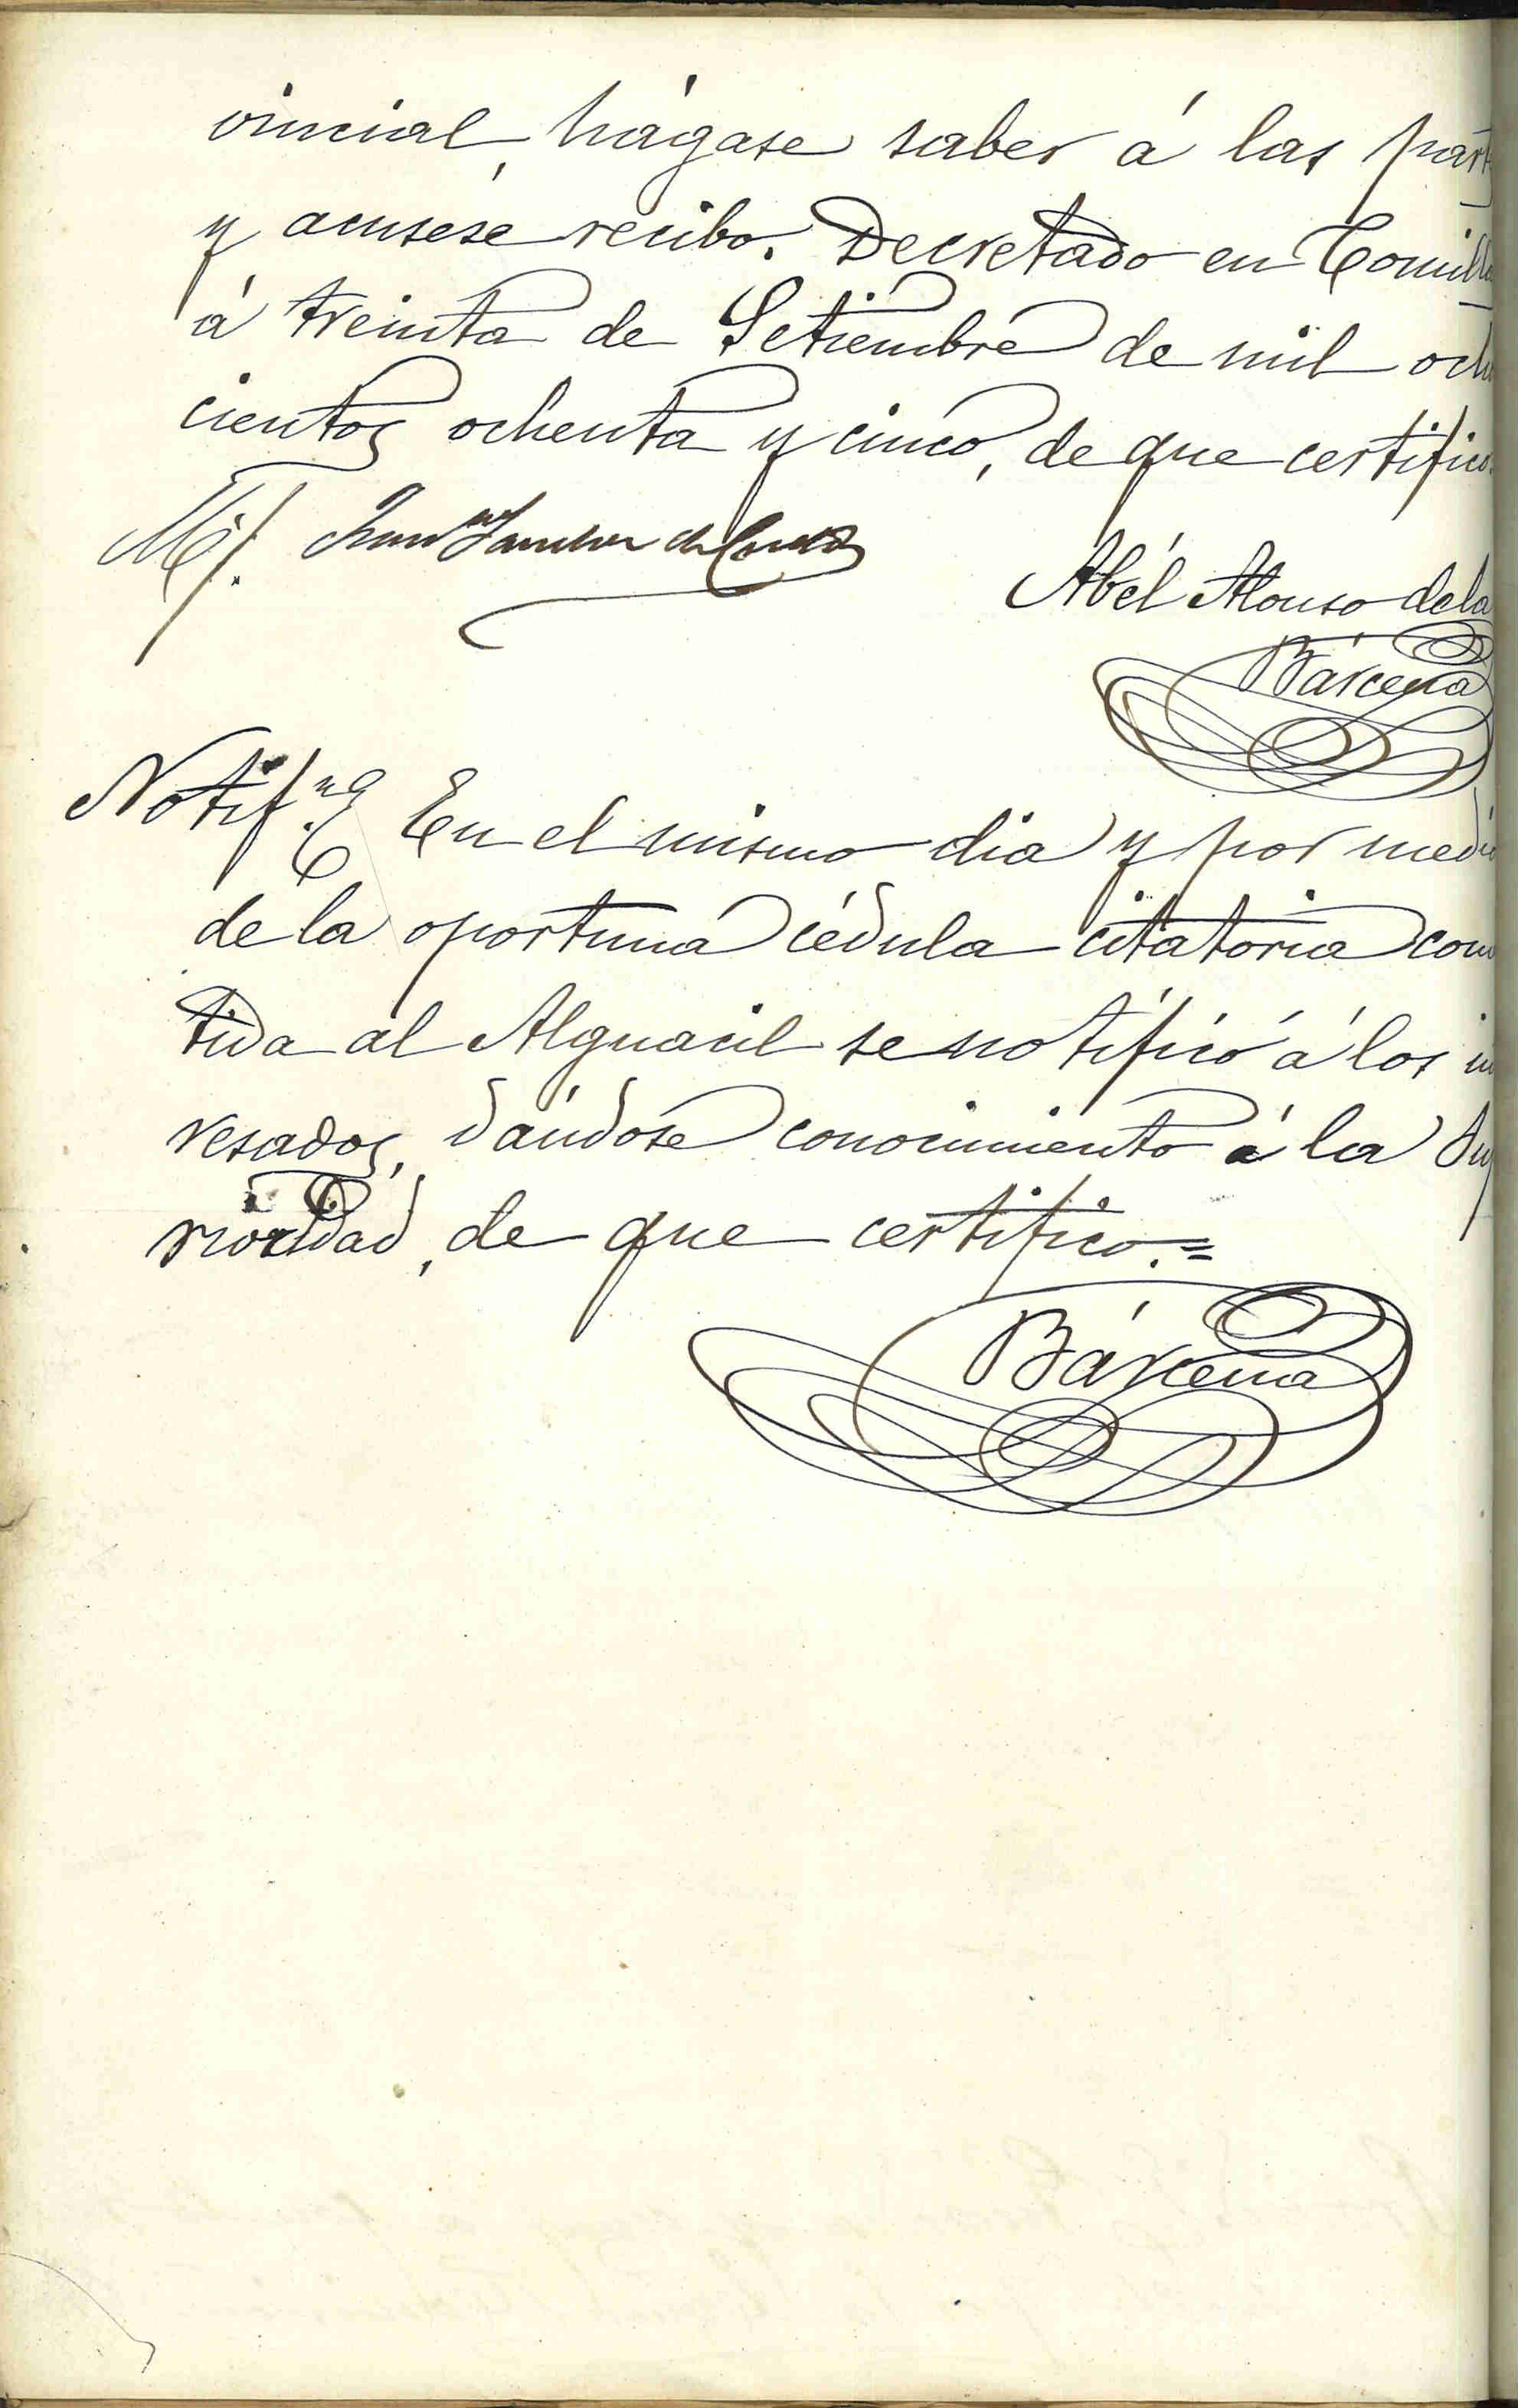 vincial, hágase saber á las part
y acusese recibo. Decretado en Comill
á treinta de Setiembre de mil ocho
cientos ochenta y cinco, de que certifico.
Juan Sanchez de
Abél Alonso de la
Bárcena
Notif.ⁿ En el mismo dia y por medio
de la oportuna cédula citatoria come
tida al Alguacil se notificó á los in
resados, dándose conocimiento á la Sup
rioridad, de que certifico.=
Bárcena